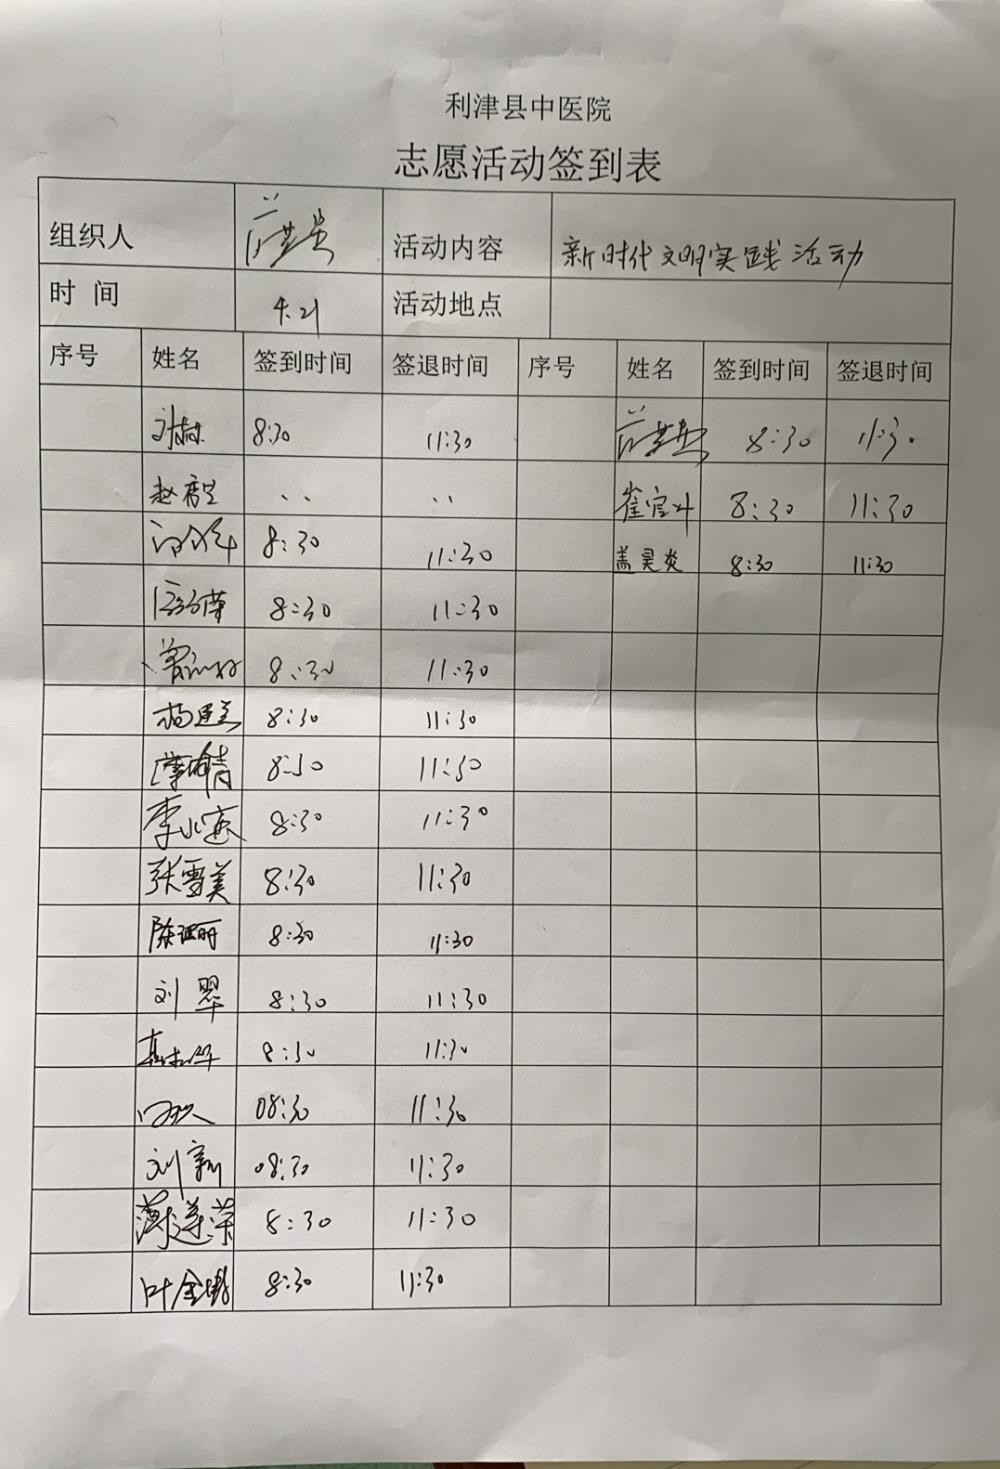 利津县中医院
志愿活动签到表
组织人 活动内容 新时代文明实践活动
时间 4.21 活动地点
序号 姓名 签到时间 签退时间 序号 姓名 签到时间 签退时间
8:30 11:30 8:30 11:30
赵 、、 、、 崔 8:30 11:30
8:30 11:30 盖昊炎 8:30 11:30
8:30 11:30
8:30 11:30
杨 8:30 11:30
倩 8:30 11:30
李 8:30 11:30
张雪美 8:30 11:30
陈丽 8:30 11:30
刘翠 8:30 11:30
8:30 11:30
08:30 11:30
刘新 08:30 11:30
薄莲荣 8:30 11:30
叶金 8:30 11:30